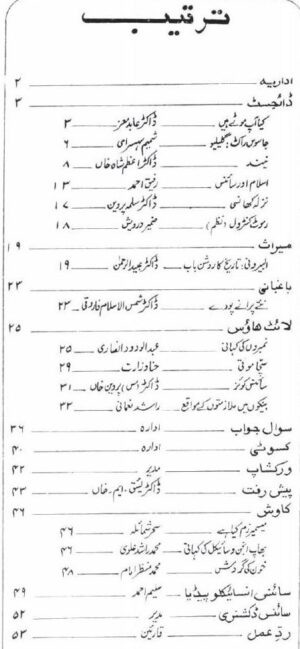 ترتیب
اداریہ ۲
ڈائجسٹ ۳
کیا آپ موٹے ہیں ڈاکٹر عابد معز ۳
جاسوس راکٹ: گلیلیو شمیم سہسرامی ۶
نیند ڈاکٹر اعظم شاہ خاں ۸
اسلام اور سائنس رفیق احمد ۱۳
نزلہ کھانسی ڈاکٹر سلمہ پروین ۱۷
ریموٹ کنٹرول (نظم) ضمیر درویش ۱۸
میراث ۱۹
البیرونی: تاریخ کا روشن باب ڈاکٹر عبیدالرحمن ۱۹
باغبانی ۲۳
نئے پرانے پودے ڈاکٹر شمس الاسلام فاروقی ۲۳
لائٹ ہاؤس ۲۵
نمبروں کی کہانی عبدالودود انصاری ۲۵
۲۹
سائنس کوئز ڈاکٹر (مس) پروین خاں ۳۱
بینکوں میں ملازمتوں کے مواقع راشد نعمانی ۳۲
سوال جواب ادارہ ۳۶
کسوٹی ادارہ ۴۰
ورکشاپ مدیر ۴۲
پیش رفت ڈاکٹر ایم۔ خاں ۴۳
کاوش ۴۶
مسمیریزم کیا ہے سحر شمائلہ ۴۶
بھاپ انجن و سائیکل کی کہانی محمد راشد علوی ۴۶
خون کی گردش محمد منظر امام ۴۸
سائنس انسائیکلوپیڈیا سلیم احمد ۴۹
سائنس ڈکشنری مدیر ۵۲
ردِّ عمل قارئین ۵۳